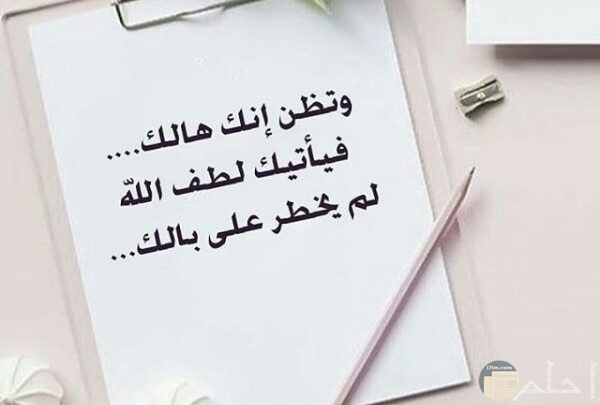 وتظن إنك هالك....
فيأتيك لطف الله
لم يخطر على بالك...
احلم